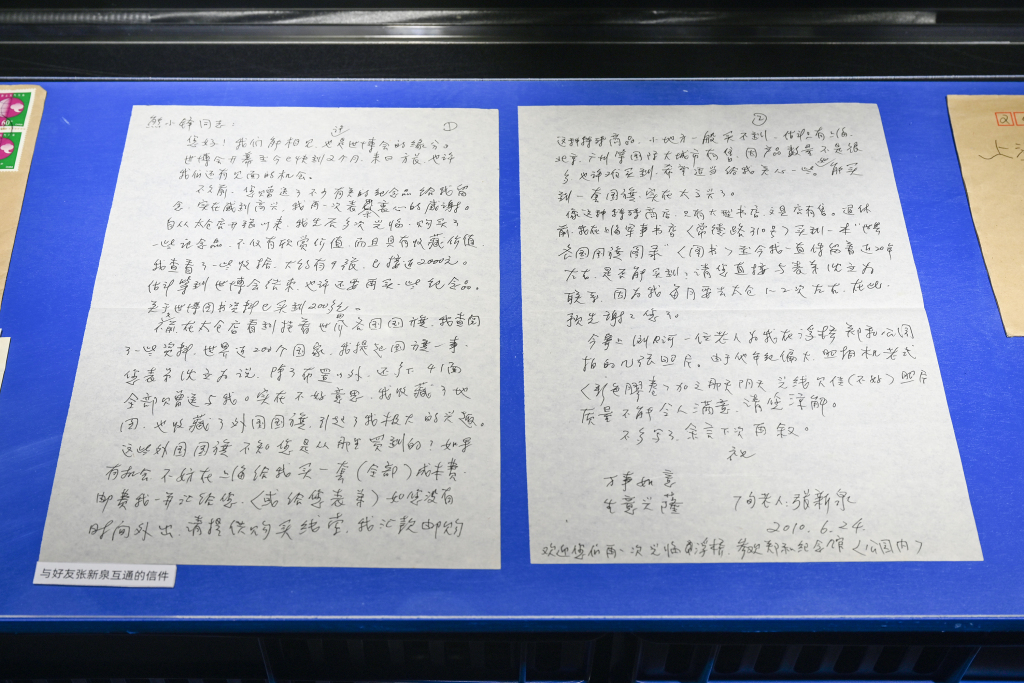 熊小锋同志:
①
您好!我们都相见,也是世博会的缘分。
这
世博会开幕至今已快到2个月,来日方长,也许
我们还有见面的机会。
不久前,您赠送了不少有关的纪念品给我留
念,实在感到高兴,我再一次表示衷心的感谢。
自从太仓店开张以来,我先后多次光临,购买了
一些纪念品,不仅有欣赏价值,而且具有收藏价值,
我查看了一些收据,大约有9张,已接近2000元。
估计等到世博会结束,也许还要再买一些纪念品。
关于世博图书资料已买到200多元。
前在太仓店看到挂着世界各国国旗,我查阅
了一些资料,世界近200个国家,我提起国旗一事,
您表弟沈立为说,除了布置以外,还多了41面
全部只赠送与我。实在不好意思,我收藏了地
图,也收藏了外国国旗,引起了我极大的兴趣。
这些外国国旗不知您是从那里买到的?如果
有机会不妨在上海给我买一套(全部)成本费,
邮费我一并汇给您,(或给您表弟)如您没有
时间外出,请提供购买线索,我汇款邮购
②
这种特殊商品,小地方一般买不到,估计上有上海,
北京、广州等国际大城市有售,因产品数量不是很
多,也许难买到,希望适当给我关心一些。能买
到一套国旗,实在太高兴了。
像这种特殊商店,只有大型书店,文具店有售。退休
前,我在上海军事书店(常德路310号)买到一本"世界
各国国旗图录"(图书)至今我一直保留着近20年
左右,是否能买到,请您直接与表弟沈立为
联系,因为我每月要去太仓1-2次左右,在此,
预先谢谢您了。
今寄上浏河一位老人为我在浮桥郑和公园
拍的几张照片。由于他年纪偏大,照相机老式
(彩色胶卷)加之那天阴天光线欠佳(不好)照片
质量不能令人满意,请您谅解。
不多写了,余言下次再叙。
祝
万事如意
生意兴隆 7旬老人:张新泉
2010.6.24.
欢迎您们再一次光临浮桥,参观郑和纪念馆(公园内)
与好友张新泉互通的信件
60
上海